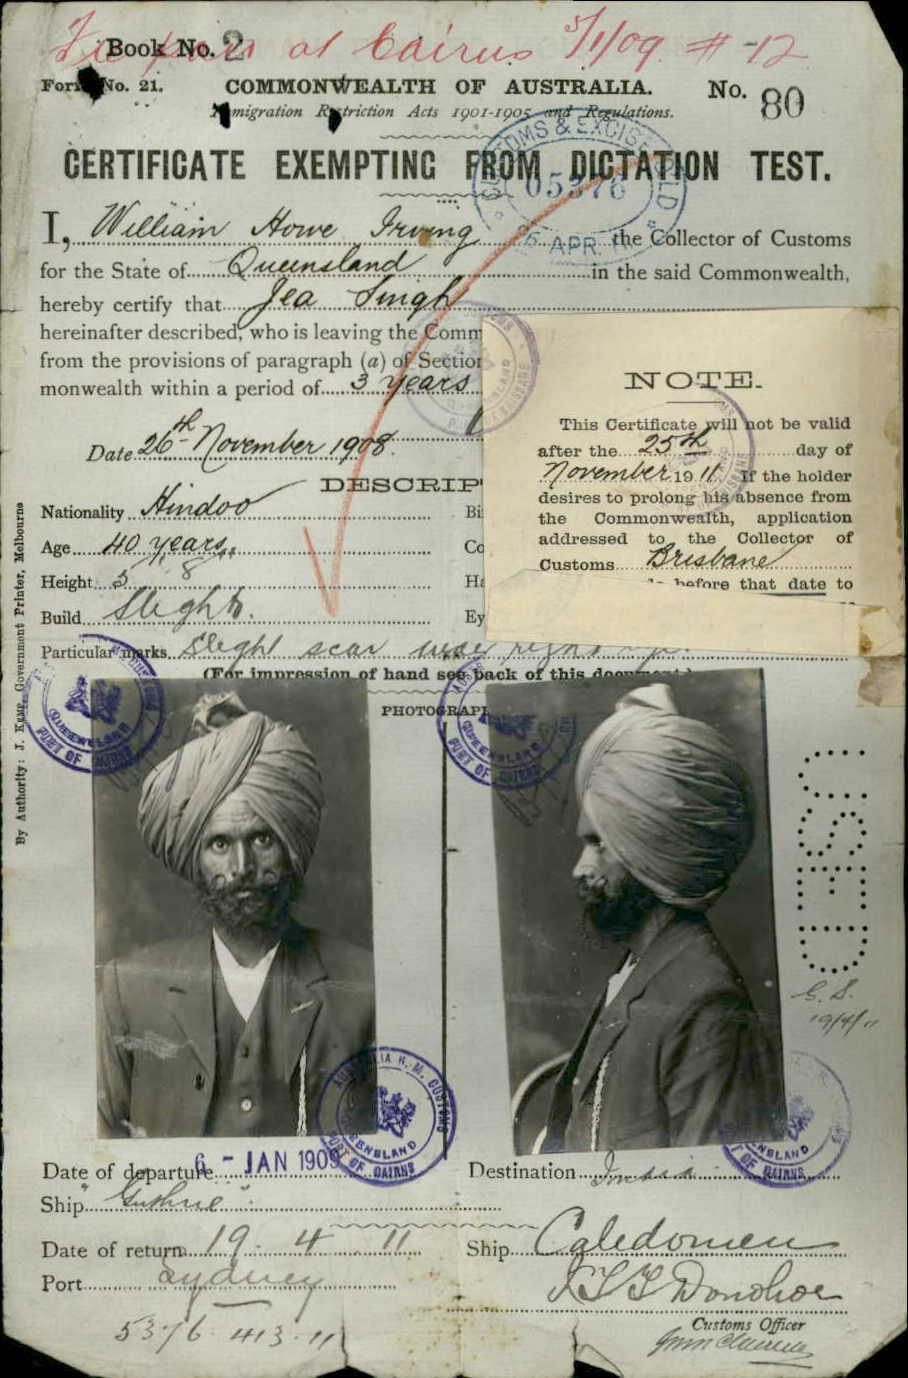 Fee paid at Cairns 5/1/09 # -12
Book No. 2
Form No. 21. COMMONWEALTH OF AUSTRALIA. No. 80
Immigration Restriction Acts 1901-1905 and Regulations.
CUSTOMS & EXCISE QLD
05376
APR
CERTIFICATE EXEMPTING FROM DICTATION TEST.
I, William Howe Irving the Collector of Customs
for the State of Queensland in the said Commonwealth,
hereby certify that Jea Singh
hereinafter described, who is leaving the Comm
from the provisions of paragraph (a) of Section
monwealth within a period of 3 years
Date 26th November 1908.
NOTE.
This Certificate will not be valid
after the 25th day of
November 1911 If the holder
desires to prolong his absence from
the Commonwealth, application
addressed to the Collector of
Customs Brisbane
before that date to
DESCRIP
Nationality Hindoo Bi
Age 40 years Co
Height 5' 8" Ha
Build Slight. Ey
Particular marks Slight scar
(For impression of hand see back of this document)
PHOTOGRAP
By Authority: J. KEMP, Government Printer, Melbourne
QUEENSLAND
PORT OF CAIRNS
QUEENSLAND
PORT OF CAIRNS
G.S.
19/4/11
AUSTRALIA H. M. CUSTOMS
QUEENSLAND
PORT OF CAIRNS
QUEENSLAND
PORT OF CAIRNS
Date of departure 6 - JAN 1909 Destination India
Ship "Guthrie".
Date of return 19. 4. 11 Ship Caledonien
Port Sydney
Donohoe
Customs Officer
5376 413.11